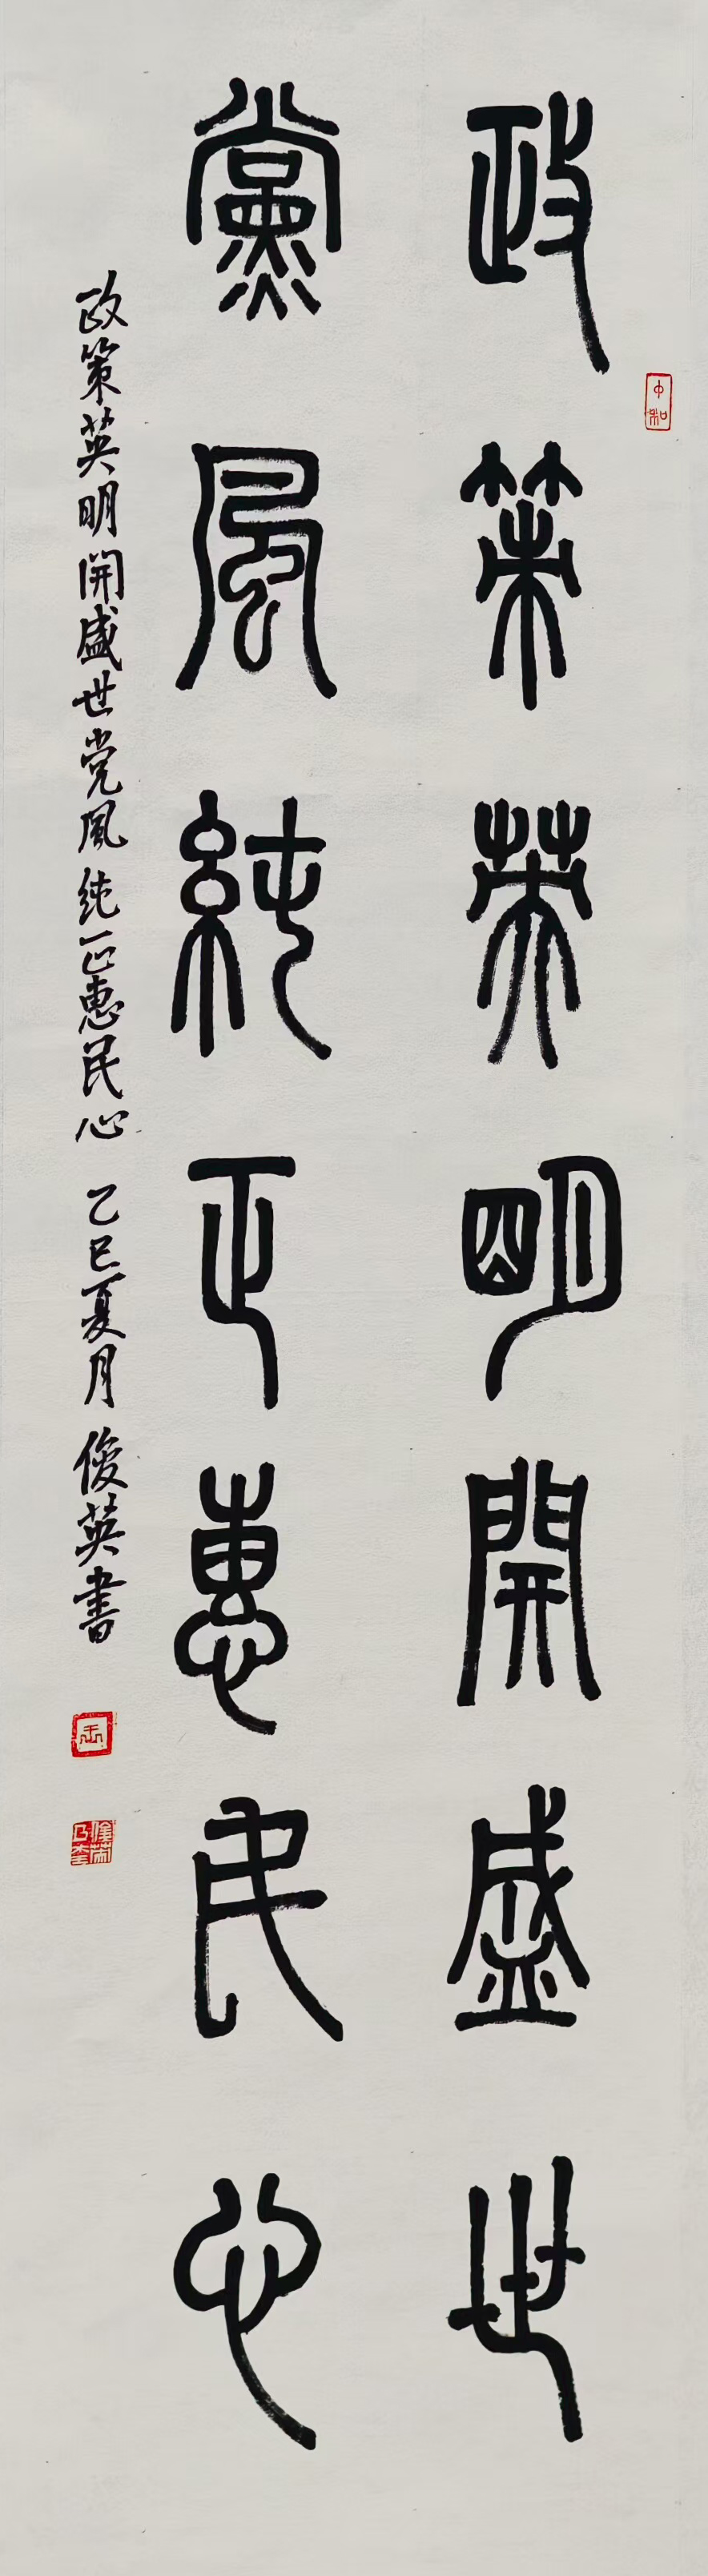 政策英明開盛世
黨風純正惠民心
政策英明開盛世党風純正惠民心 乙巳夏月 俊英書
中和